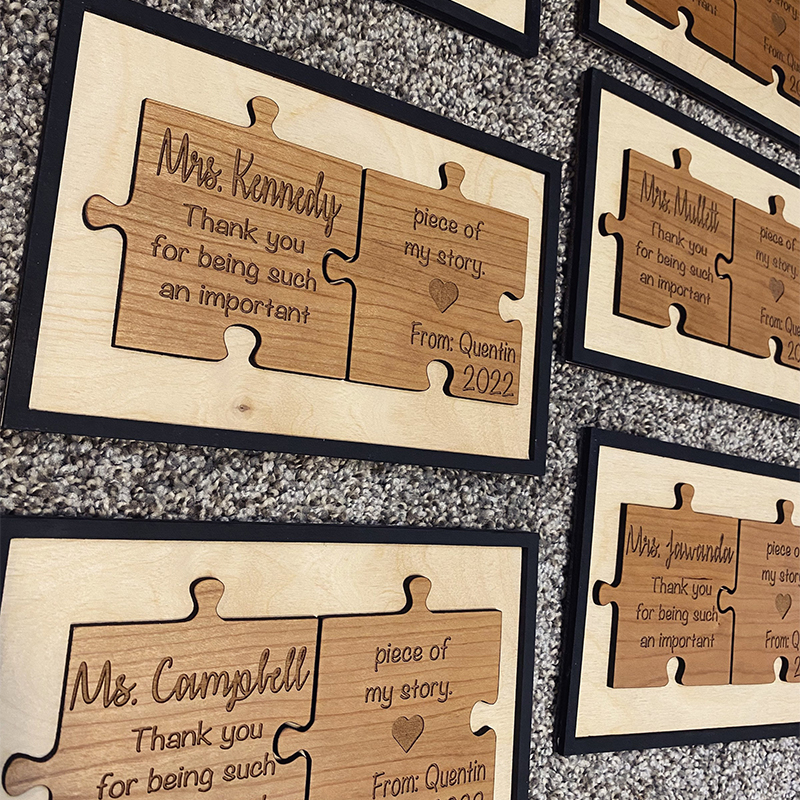 my story.
From:
Mrs. Kennedy
Thank you
for being such
an important
piece of
my story.
From: Quentin
2022
Mrs. Mullett
Thank you
for being such
an important
piece of
my story.
From:
Mrs. Jawanda
Thank you
for being such
an important
piece of
my story.
From:
Ms. Campbell
Thank you
for being such
piece of
my story.
From: Quentin